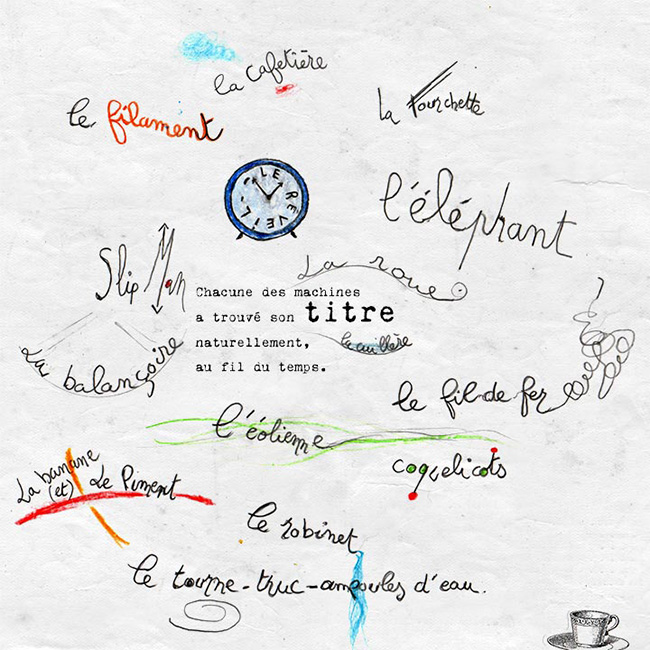 la cafetière
la fourchette
le filament
LE REVEIL
l'éléphant
Slip Man
La roue
Chacune des machines
a trouvé son titre
naturellement,
au fil du temps.
la cuillère
La balançoire
le fil-de-fer
l'éolienne
coquelicots
La banane
(et) Le Piment
le robinet
le tourne-truc-ampoules d'eau.